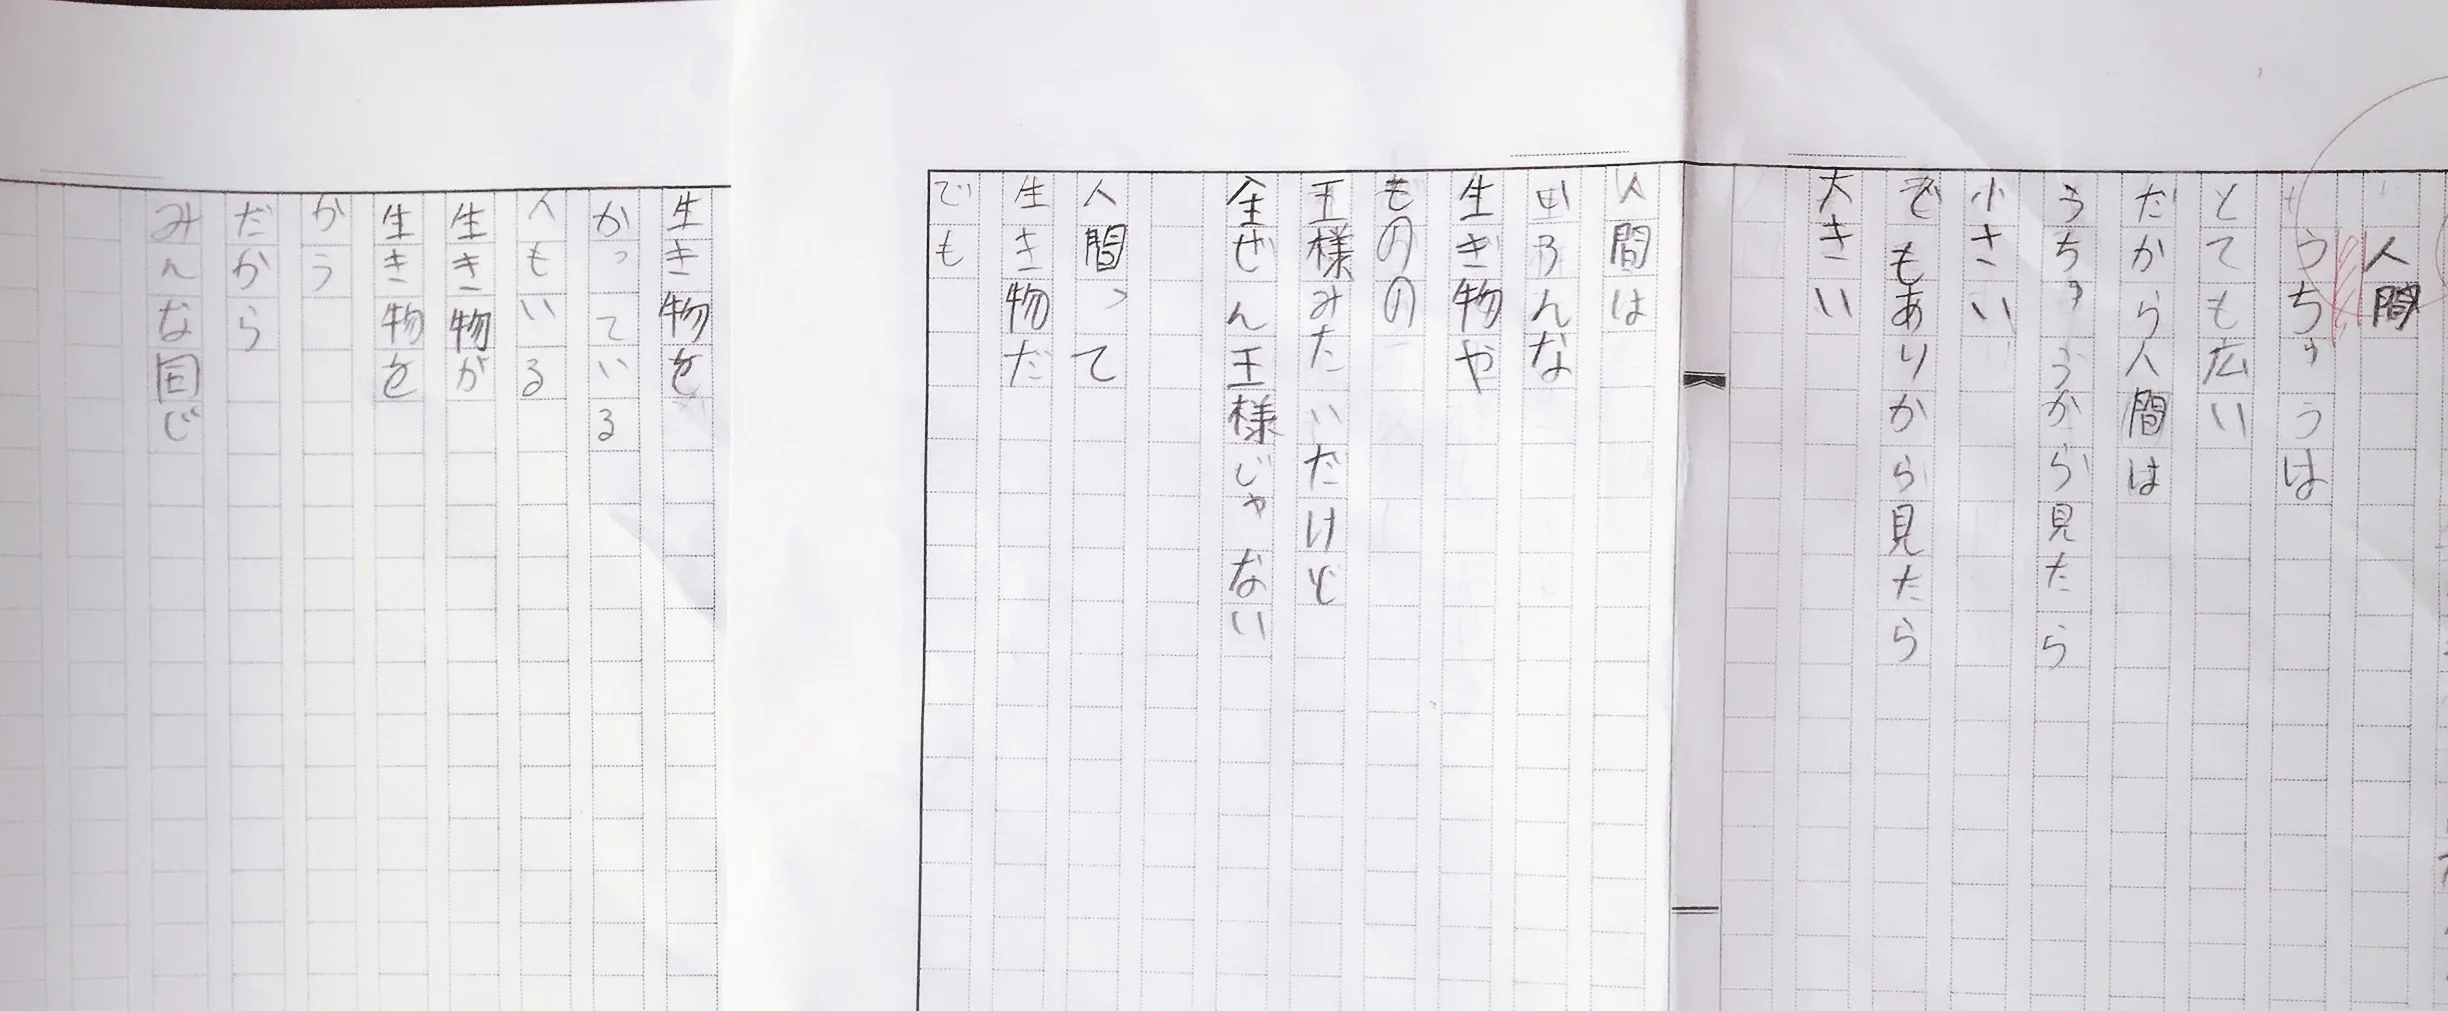 人間
うちゅうは
とても広い
だから人間は
うちゅうから見たら
小さい
でもありから見たら
大きい
人間は
いろんな
生き物や
ものの
王様みたいだけど
全ぜん王様じゃない
人間って
生き物だ
でも
生き物を
かっている
人もいる
生き物が
生き物を
かう
だから
みんな同じ